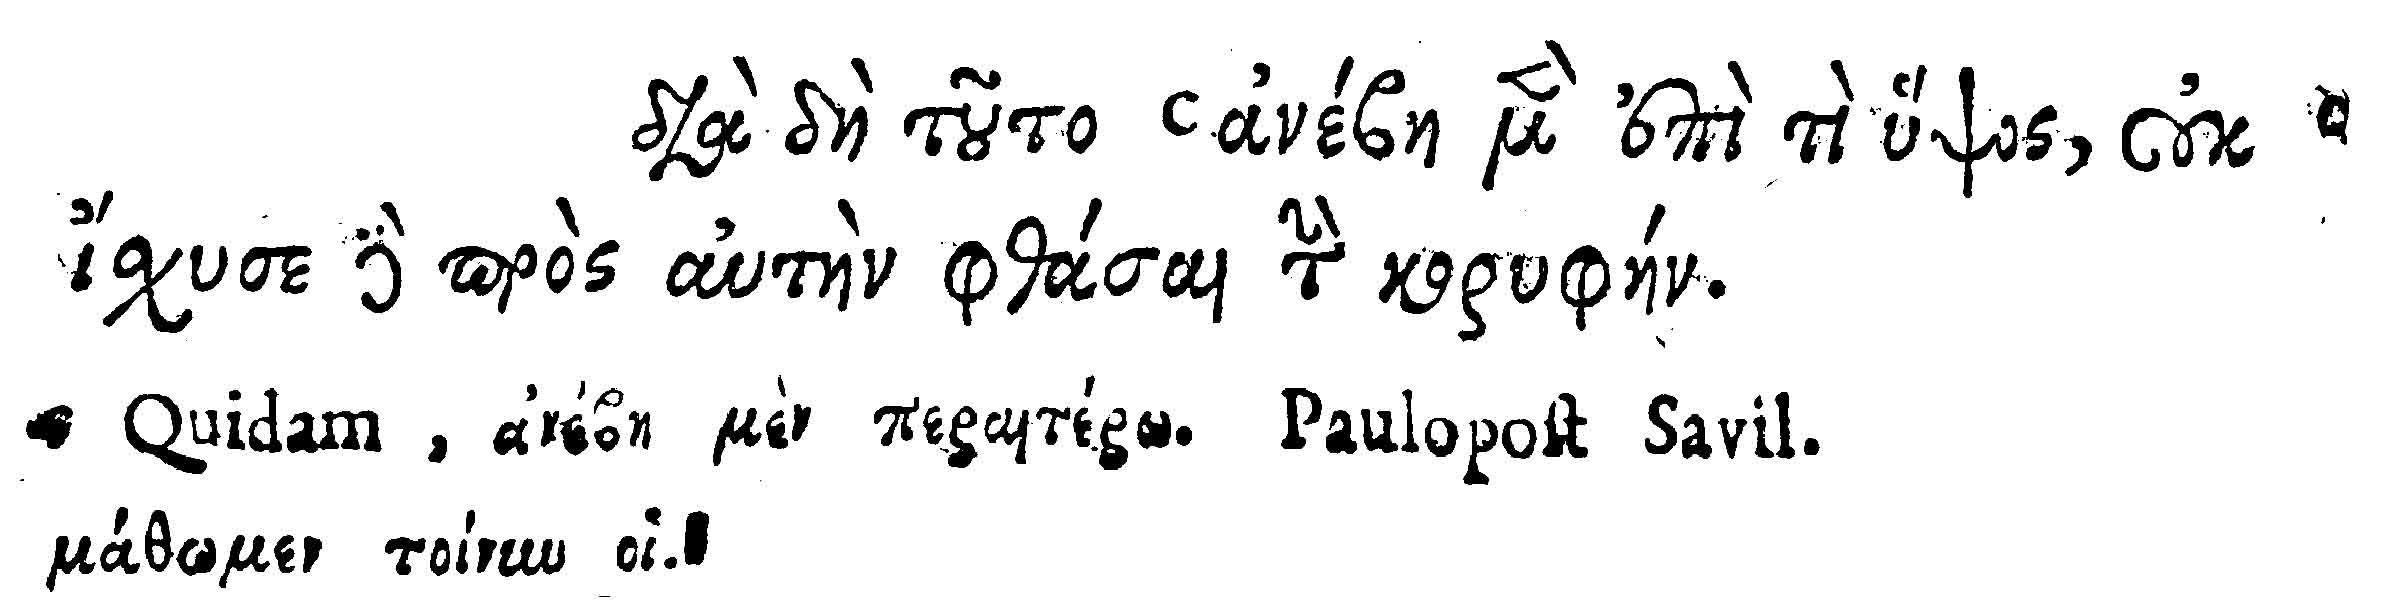 διὰ δὴ τοῦτο c ἀνέβη μὲν ἐπὶ τὸ ὕψος, οὐκ
ἴχυσε δὲ πρὸς αὐτὴν φθάσαι τὴν κορυφήν.
c Quidam, ἀνέβη μὲν περαιτέρω. Paulopost Savil.
μάθωμεν τοίνυν οἱ.